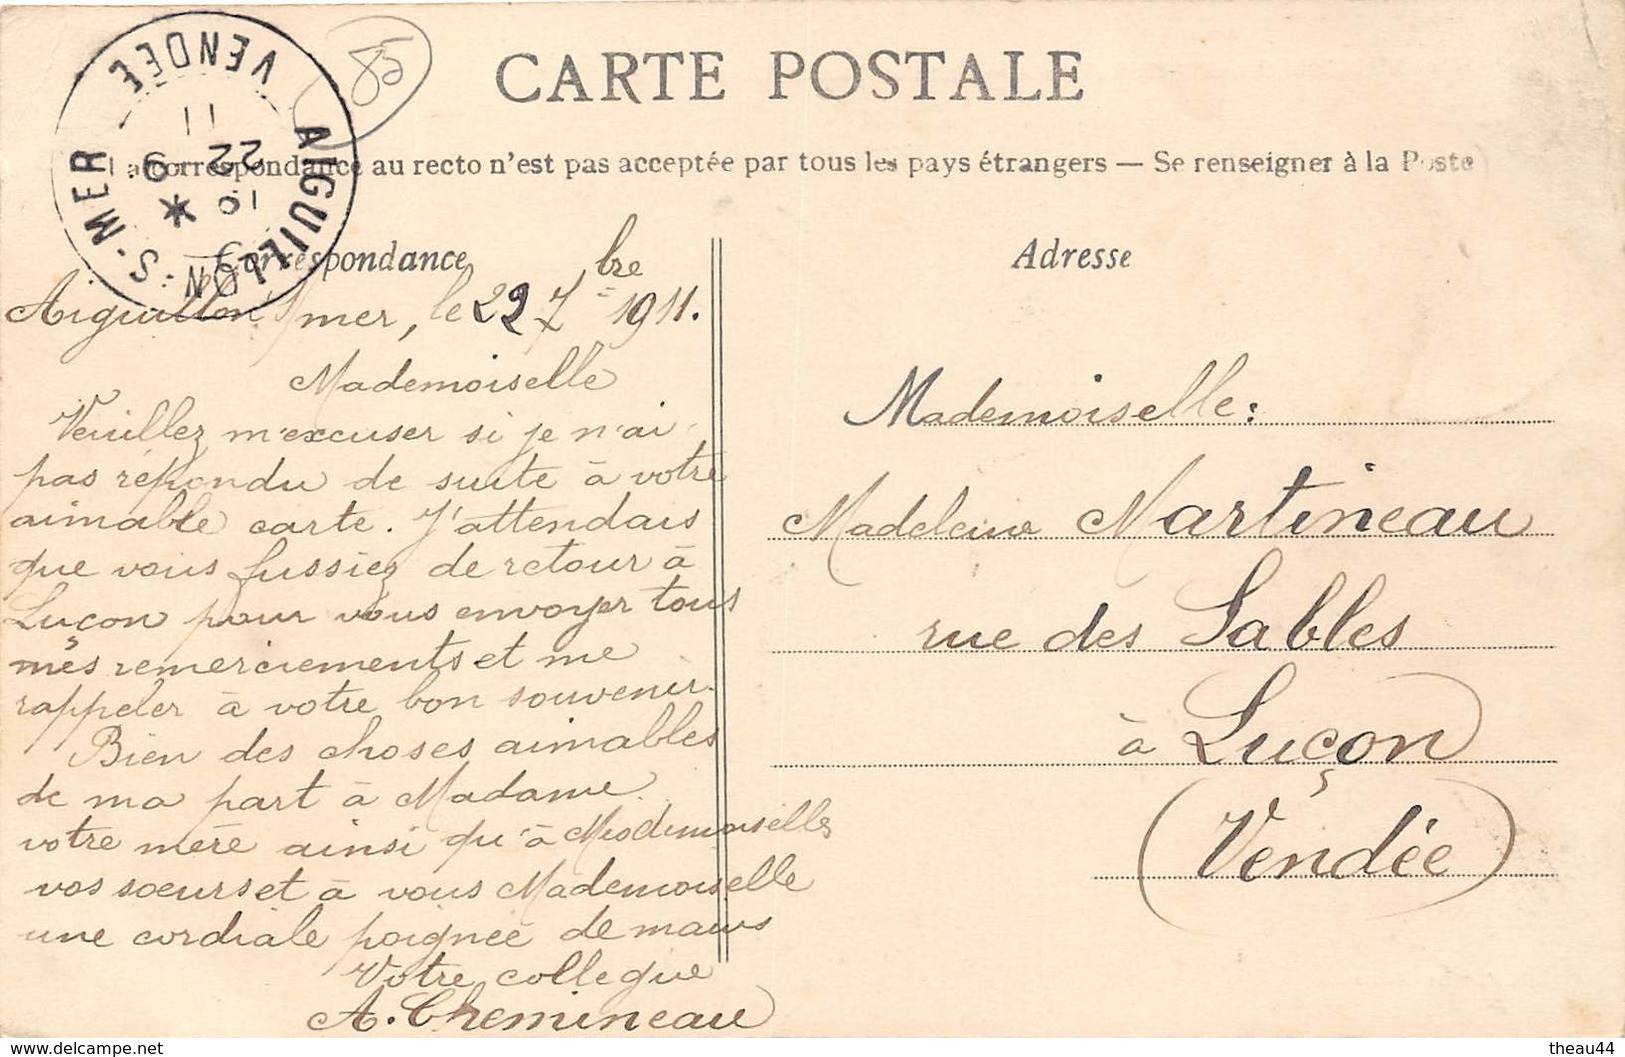 CARTE POSTALE
La correspondance au recto n'est pas acceptée par tous les pays étrangers — Se renseigner à la Poste
AIGUILLON-S-MER
VENDÉE
10
22 9
11
85
Correspondance
Aiguillon s/mer, le 22 7bre 1911.
Mademoiselle
Veuillez m'excuser si je n'ai
pas répondu de suite à votre
aimable carte. J'attendais
que vous fussiez de retour à
Luçon pour vous envoyer tous
mes remerciements et me
rappeler à votre bon souvenir.
Bien des choses aimables
de ma part à Madame
votre mère ainsi qu'à Mesdemoiselles
vos soeurs et à vous Mademoiselle
une cordiale poignée de mains
Votre collegue
A. Chemineau
Adresse
Mademoiselle:
Madeleine Martineau
rue des Sables
à Luçon
(Vendée)
https://www.delcampe.net
theau44